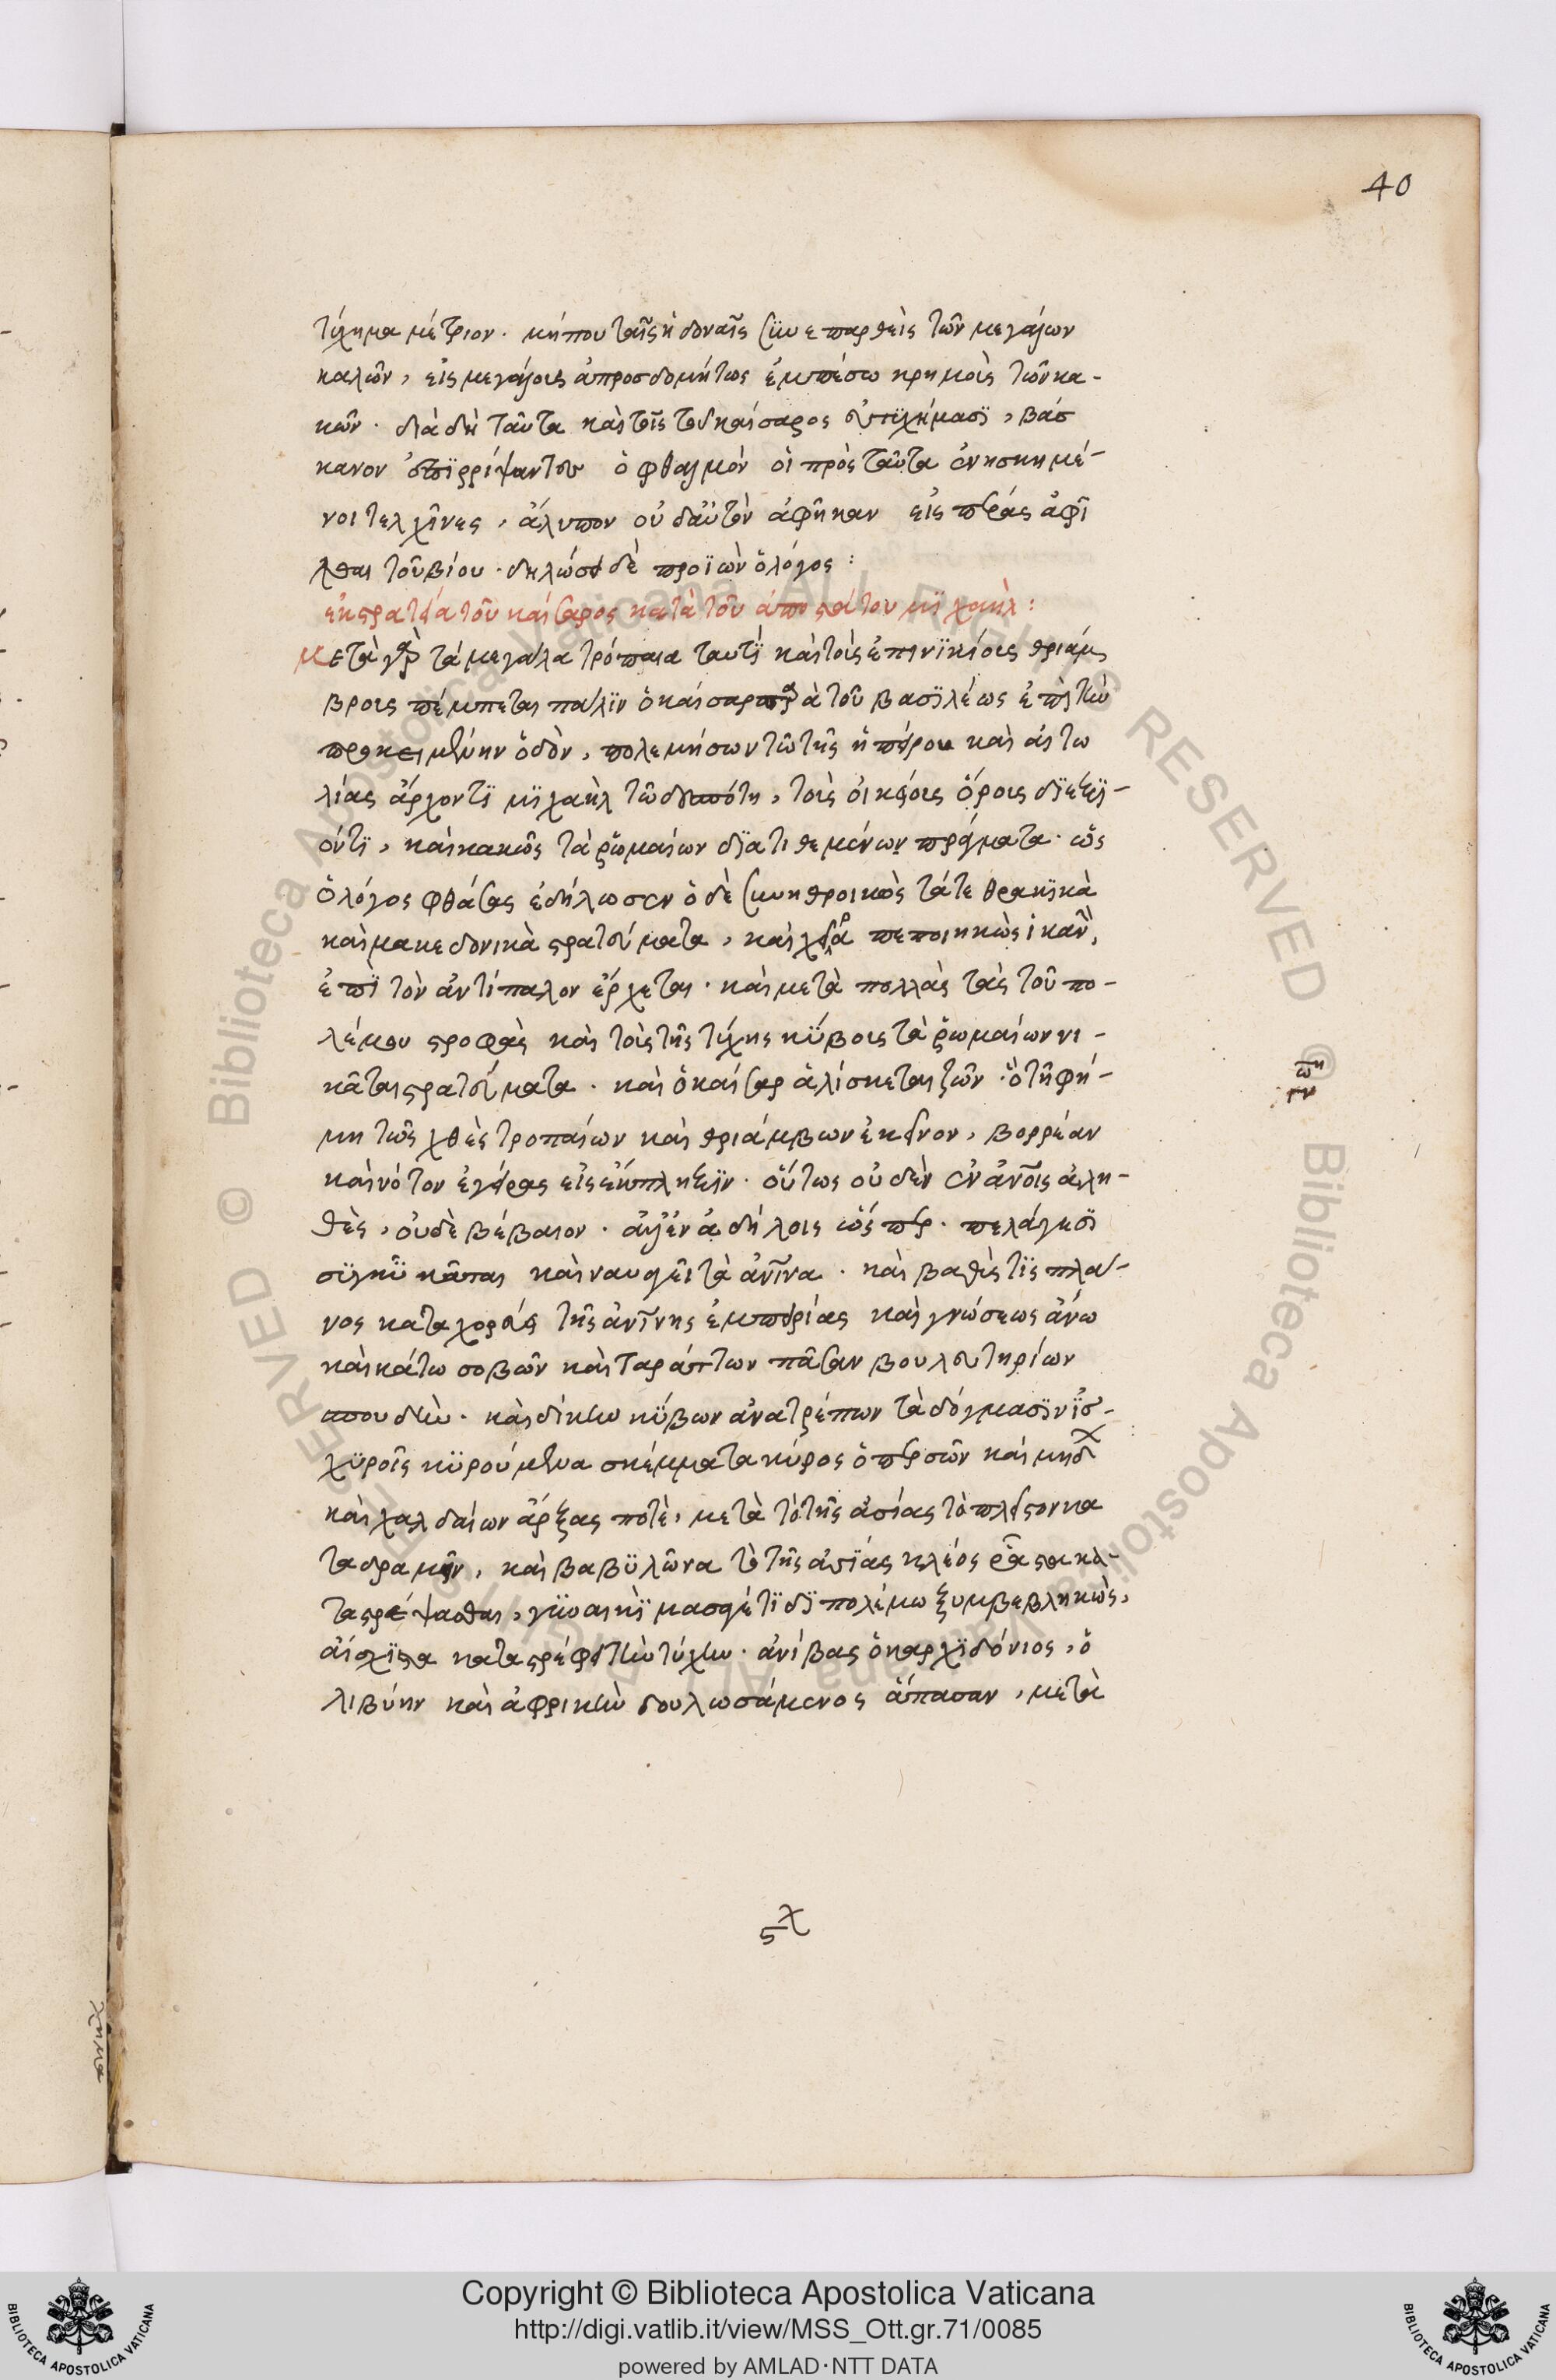 40
τύχημα μέτριον. μήπου ταῖς ἡδοναῖς συνεπαρθεὶς τῶν μεγάλων
καλῶν, εἰς μεγάλοις ἀπροσδοκήτως ἐμπέσω κρημνοῖς τῶν κα-
κῶν. διὰ δὴ ταῦτα καὶ τοῖς τοῦ καίσαρος εὐτυχήμασϊ, βάσ
κανον ἐπϊρρίψαντες ὀφθαλμὸν οἱ πρὸς ταῦτα ἐνησκημέ-
νοι τελχῖνες, ἄλυπον οὐδ' αὐτὸν ἀφῆκαν εἰς πέρας ἀφῖ
χθαι τοῦ βίου. δηλώσει δὲ προϊὼν ὁ λόγος:
ἐκστρατεία τοῦ καίσαρος κατὰ τοῦ ἀποστάτου μϊχαὴλ:
Μετὰ γὰρ τὰ μεγάλα τρόπαια ταυτὶ καὶ τοὺς ἐπινϊκίοις θριάμ
βροις πέμπεται πάλϊν ὁ καίσαρ παρὰ τοῦ βασϊλέως ἐπὶ τὴν
προκειμένην ὁδὸν, πολεμήσων τῶ τῆς ἠπείρου καὶ αἰτω
λίας ἄρχοντϊ μϊχαὴλ τῶ δεσπότη, τοὺς οἰκείοις ὅροις δϊεξϊ-
όντϊ, καὶ κακῶς τὰ ῥωμαίων δϊατιθεμένων πράγματα. ὡς
ὁ λόγος φθάσας ἐδήλωσεν ὁ δὲ συνηθροικὼς τά τε θρακϊκὰ
καὶ μακεδονικὰ στρατεύματα, καὶ χεῖρα πεποιηκὼς ἱκανὴν,
ἐπὶ τὸν ἀντίπαλον ἔρχεται. καὶ μετὰ πολλὰς τὰς τοῦ πο-
λέμου στροφὰς καὶ τοὺς τῆς τύχης κύβοις τὰ ῥωμαίων νι-
κᾶται στρατεύματα. καὶ ὁ καίσαρ ἁλίσκεται ζῶν. ὁ τῆ φή-
μη τῶν χθὲς τροπαίων καὶ θριάμβων ἐκεῖνον, βορρέαν
καὶ νότον ἐγείρας εἰς ἔκπληξϊν. οὕτως οὐδὲν ἐν ἀνοις ἀλη-
θὲς, οὐδὲ βέβαιον. ἀλλ' ἐν ἀδήλοις ὥσπερ. πελάγεσϊ
σϊγκϋκᾶται καὶ ναυαγεῖ τὰ ἀνινα. καὶ βαθὺς τϊς πλά-
νος καταχορεύει τῆς ἀνίνης ἐμπειρίας καὶ γνώσεως ἄνω
καὶ κάτω σοβῶν καὶ ταράττων πᾶσαν βουλευτηρίων
σπουδὴν. καὶ δίκην κύβων ἀνατρέπων τὰ δόγμασϊν ἰσ-
χϋροῖς κϋρούμενα σκέμματα κύρος ὁ περσῶν καὶ μηδ
καὶ χαλδαίων ἄρξας ποτὲ, μετὰ τὸ τῆς ἀσίας τὸ πλεῖστον κα
ταδραμεῖν, καὶ βαβϋλῶνα τὸ τῆς ἀσϊάς κλέος ῥᾶστα κα-
ταστρέψασθαι, γϋναικὶ μασαγέτϊδϊ πολέμω ξυμβεβληκὼς,
αἴσχϊστα καταστρέφει τὴν τύχην. ἀνίβας ὁ καρχϊδόνιος, ὁ
λιβύην καὶ ἀφρικὴν δουλωσάμενος ἅπασαν, μετὰ
Copyright © Biblioteca Apostolica Vaticana
http://digi.vatlib.it/view/MSS_Ott.gr.71/0085
powered by AMLAD·NTT DATA